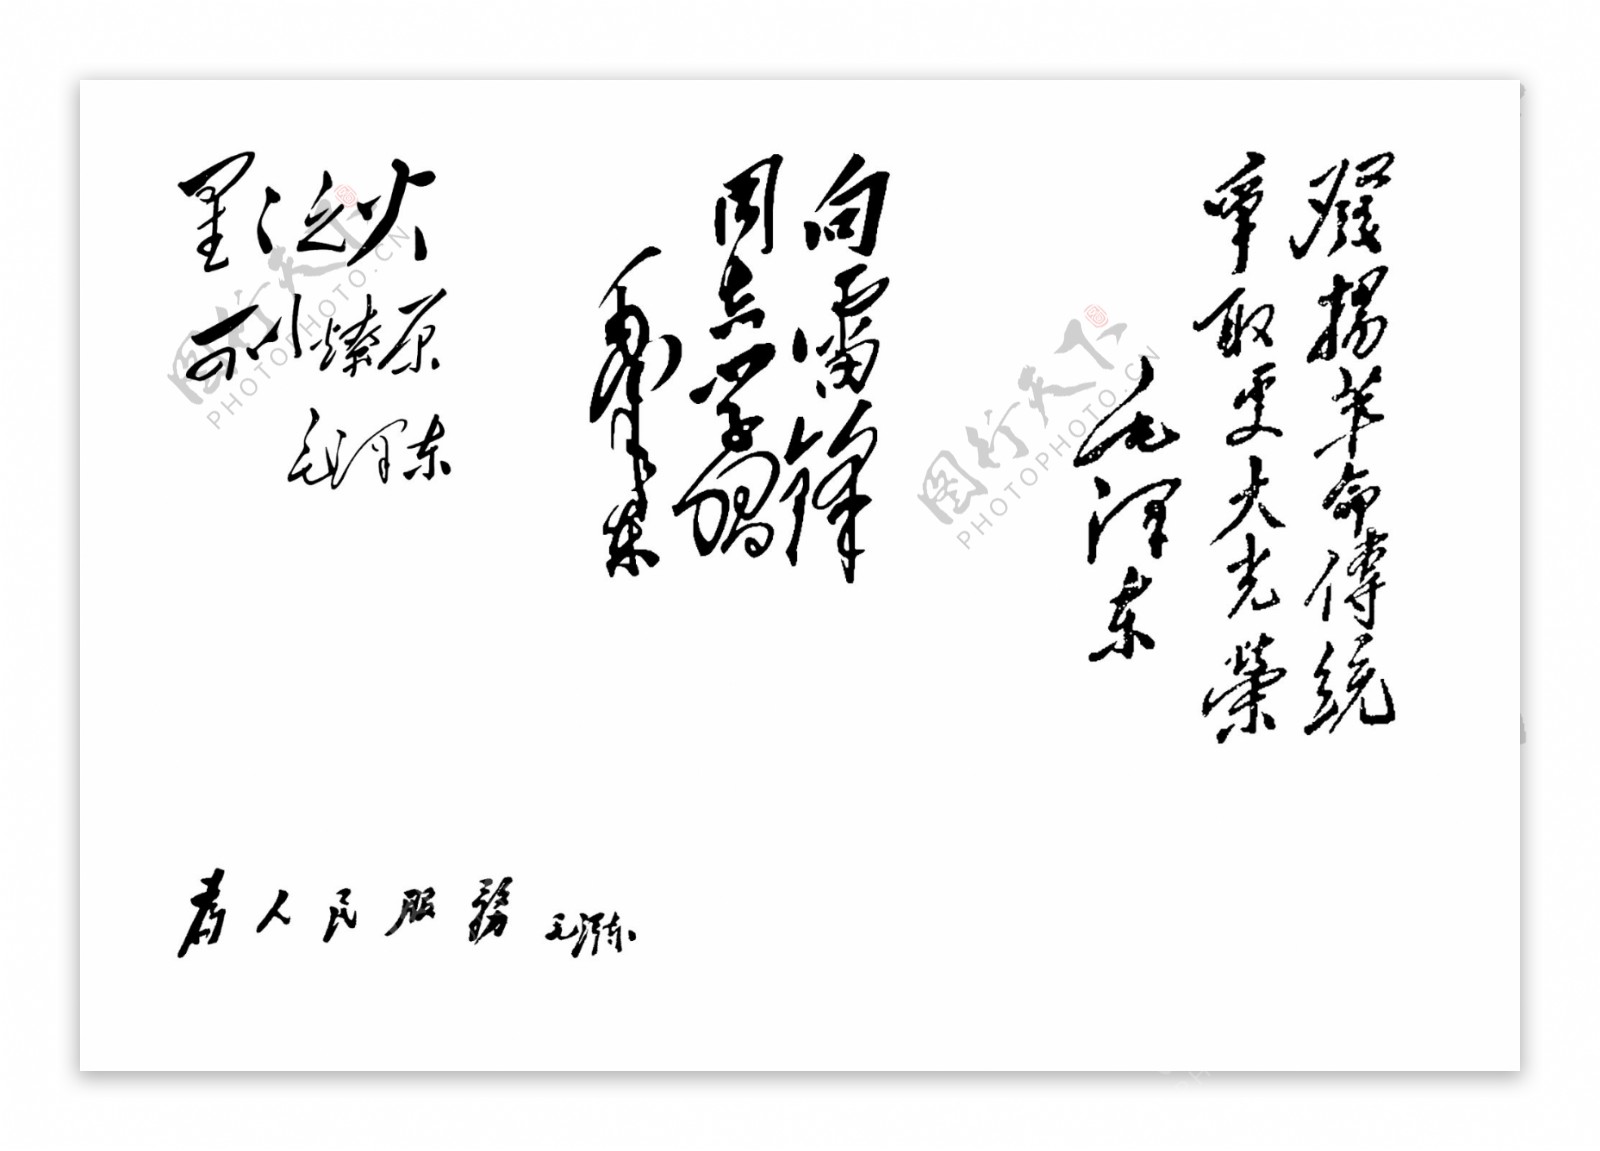 星々之火
可以燎原
毛泽东
向雷锋
同志学习
毛泽东
發揚革命傳統
爭取更大光榮
毛澤東
為人民服務
毛泽东
图行天下
PHOTOPHOTO.CN
图行天下
PHOTOPHOTO.CN